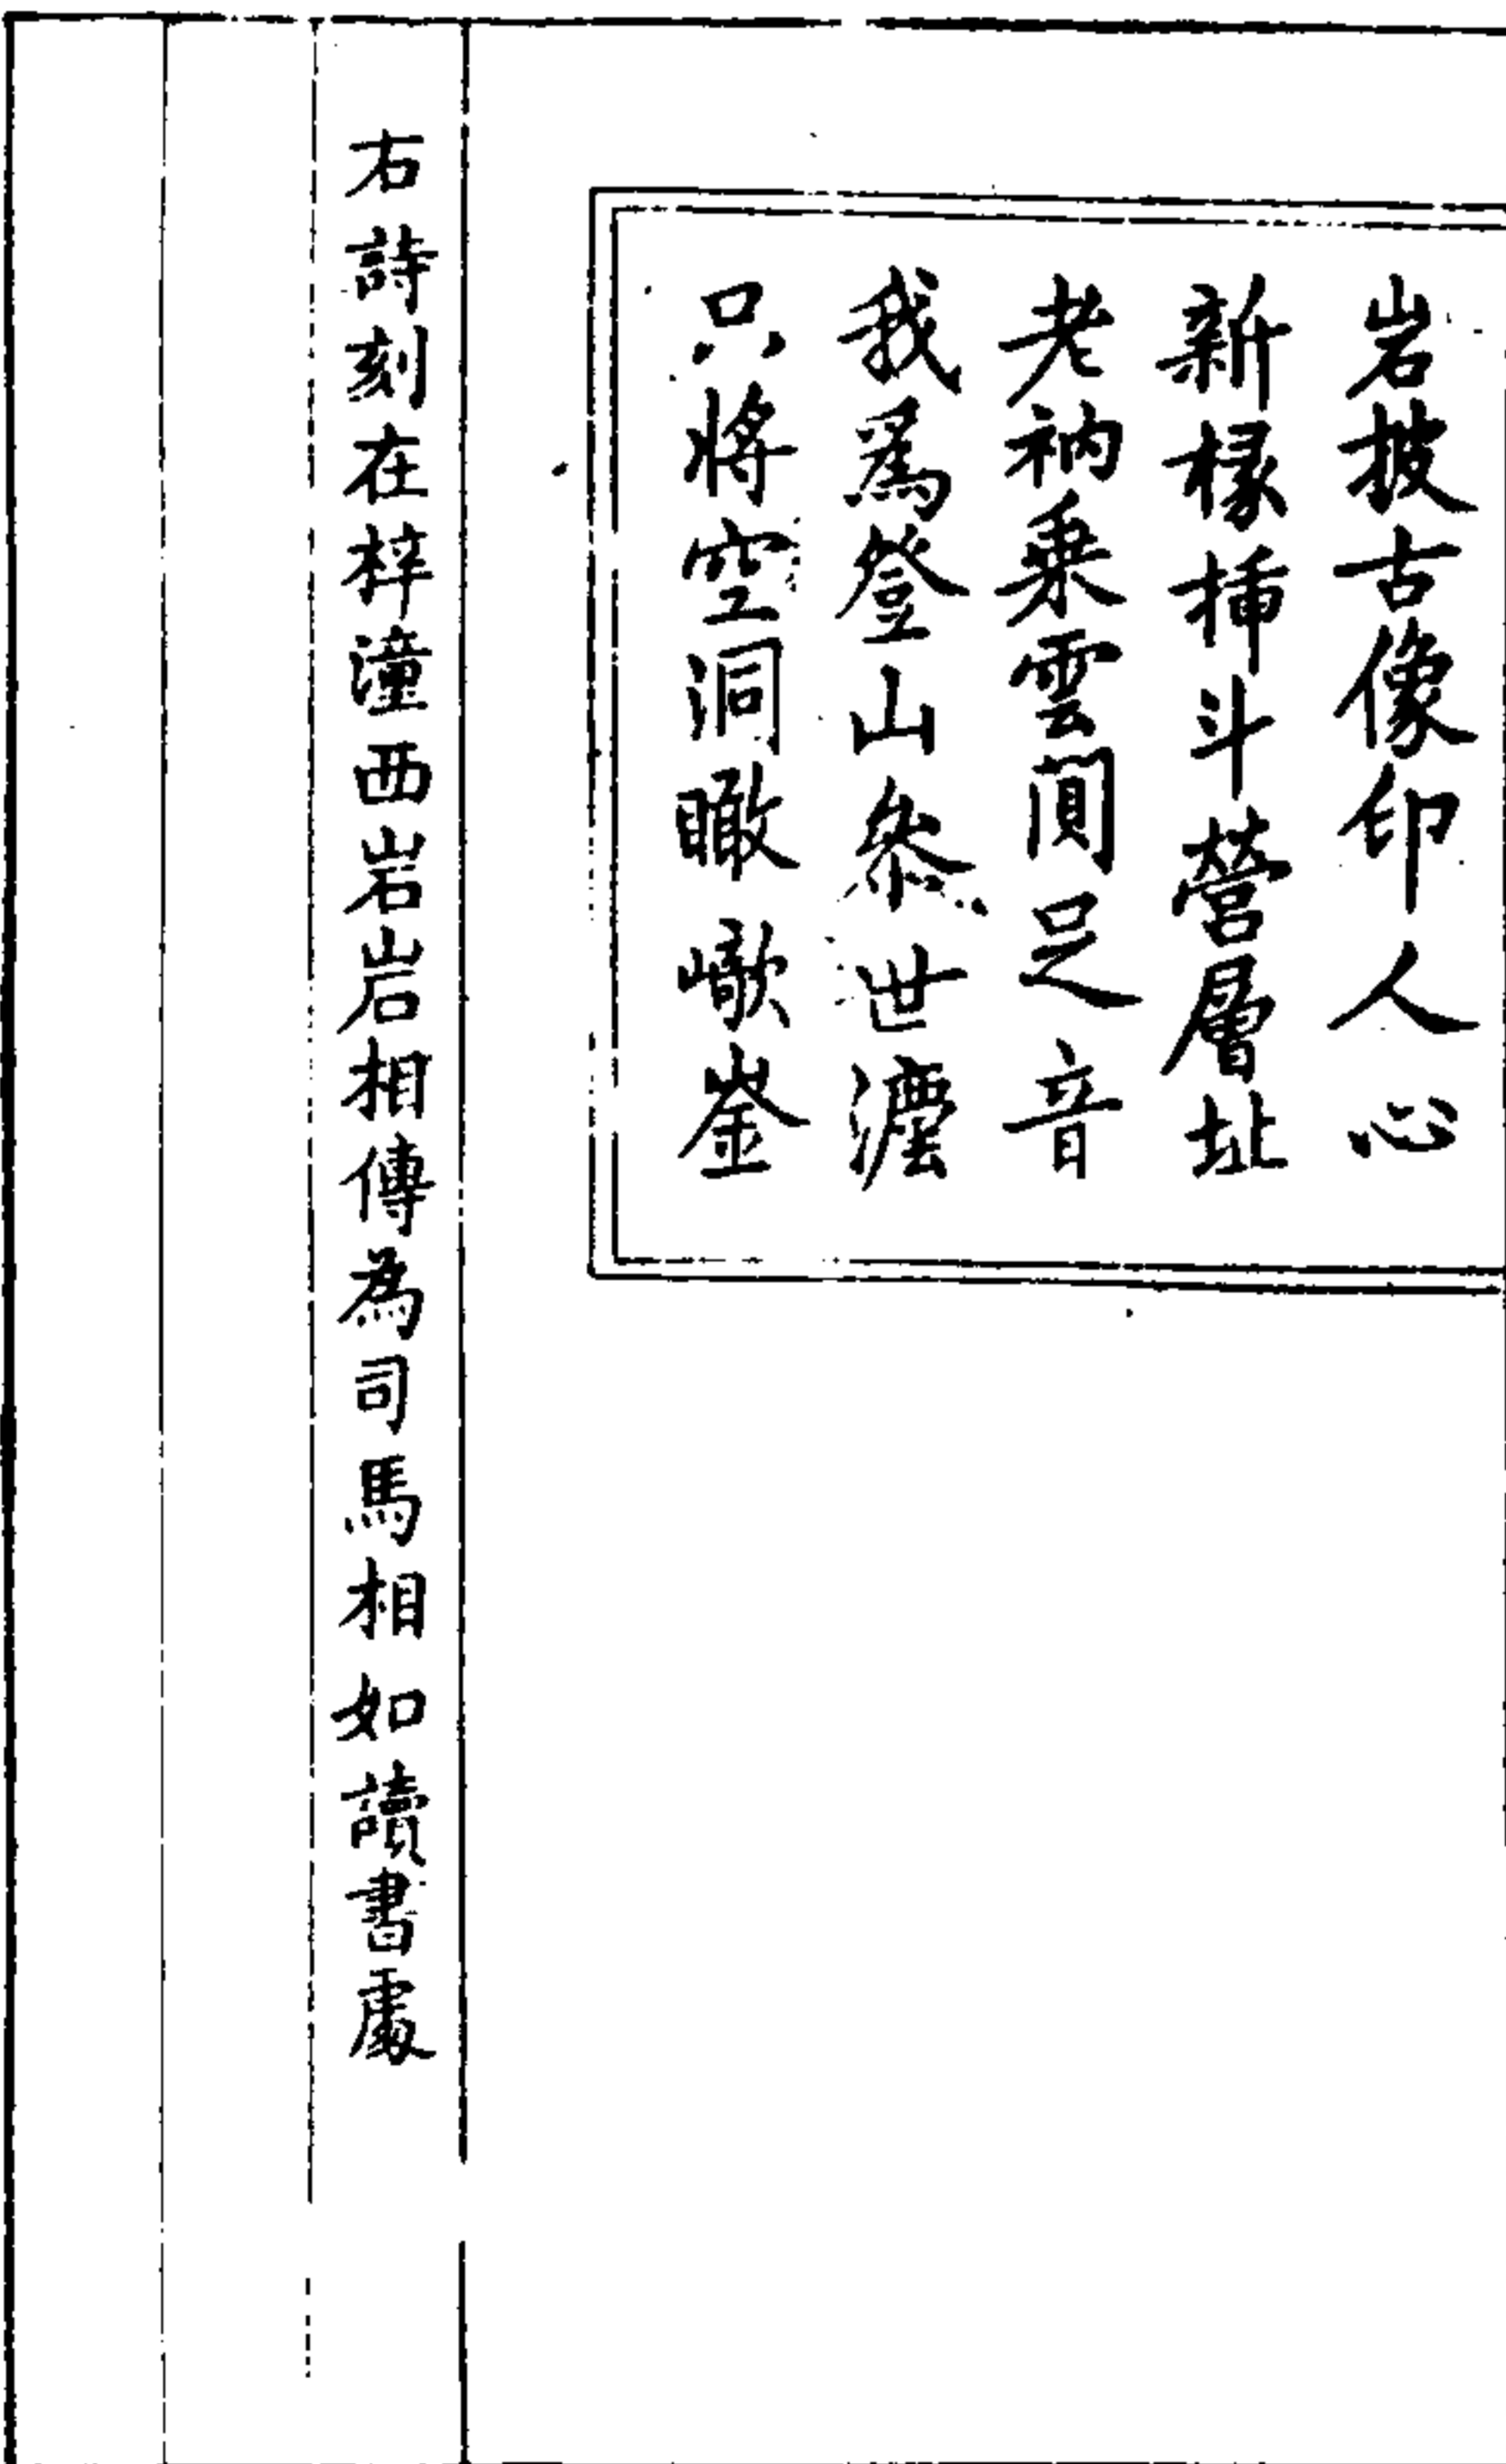 岩披古像印人心
新樣揷斗營層址
老衲乗雲閒足音
我爲登山叅世瀍
只將空洞瞰嶔崟
右詩刻在梓潼西岩岩相傳為司馬相如讀書處